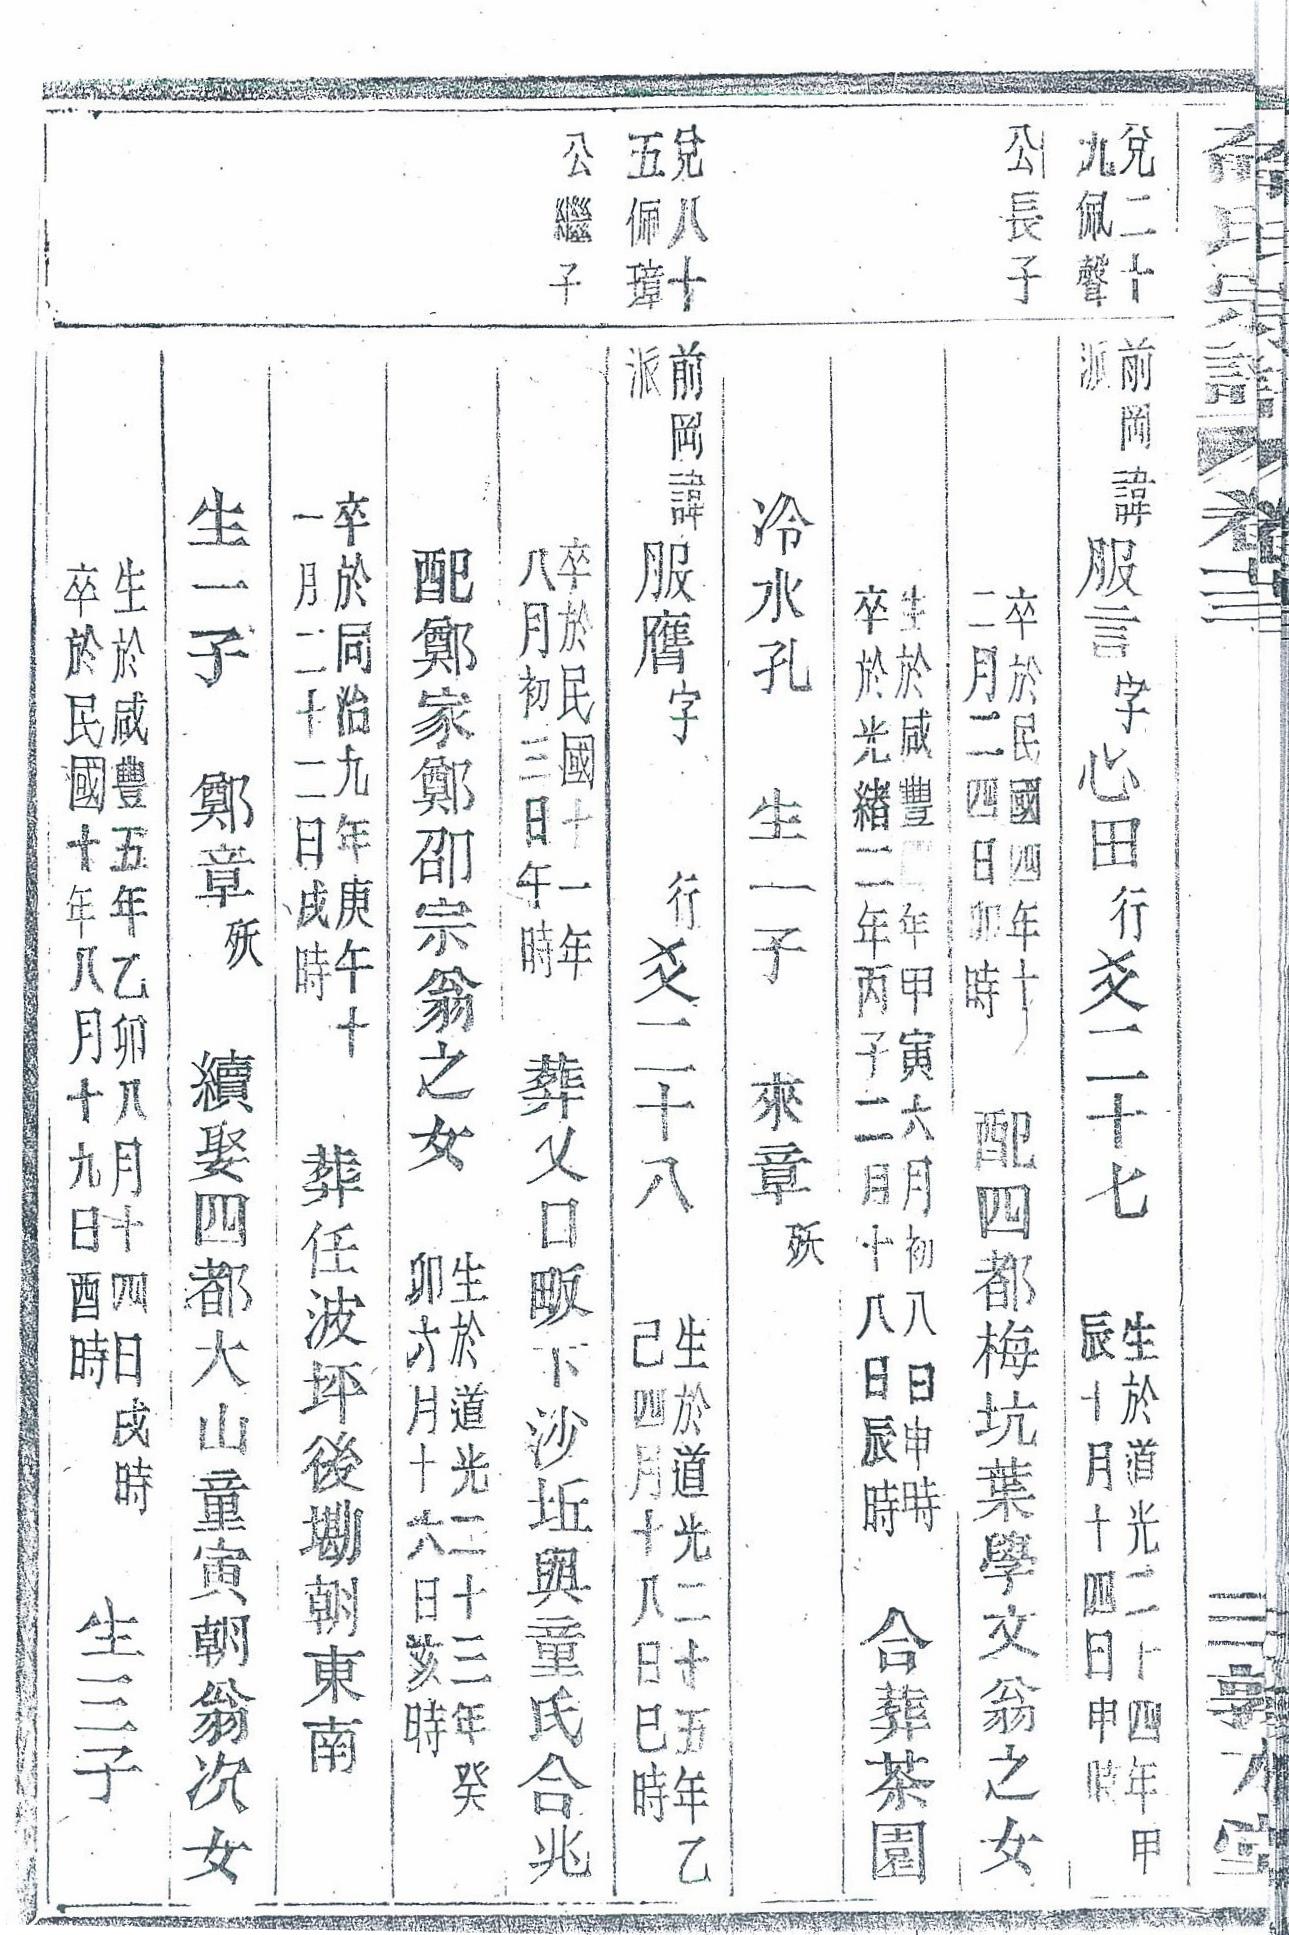 氏宗譜 卷三
兌二十
九佩聲
公長子
前岡諱
派
服言字心田行爻二十七
生於道光二十四年甲
辰十月十四日申時
卒於民國四年十
二月二四日卯時
配四都梅坑葉學文翁之女
生於咸豐四年甲寅六月初八日申時
卒於光緒二年丙子二月十八日辰時
合葬茶園
冷水孔 生一子 來章 殀
兌八十
五佩璋
公繼子
前岡諱
派
服膺字 行爻二十八
生於道光二十五年乙
己四月十八日巳時
卒於民國十一年
八月初三日午時
葬乂口畈下沙坵與童氏合兆
配鄭家鄭邵宗翁之女
生於道光二十三年癸
卯六月十六日亥時
卒於同治九年庚午十
一月二十二日戌時
葬任波坪後墈朝東南
生一子 鄭章 殀 續娶四都大山童寅朝翁次女
生於咸豐五年乙卯八月十四日戌時
卒於民國十年八月十九日酉時
生三子